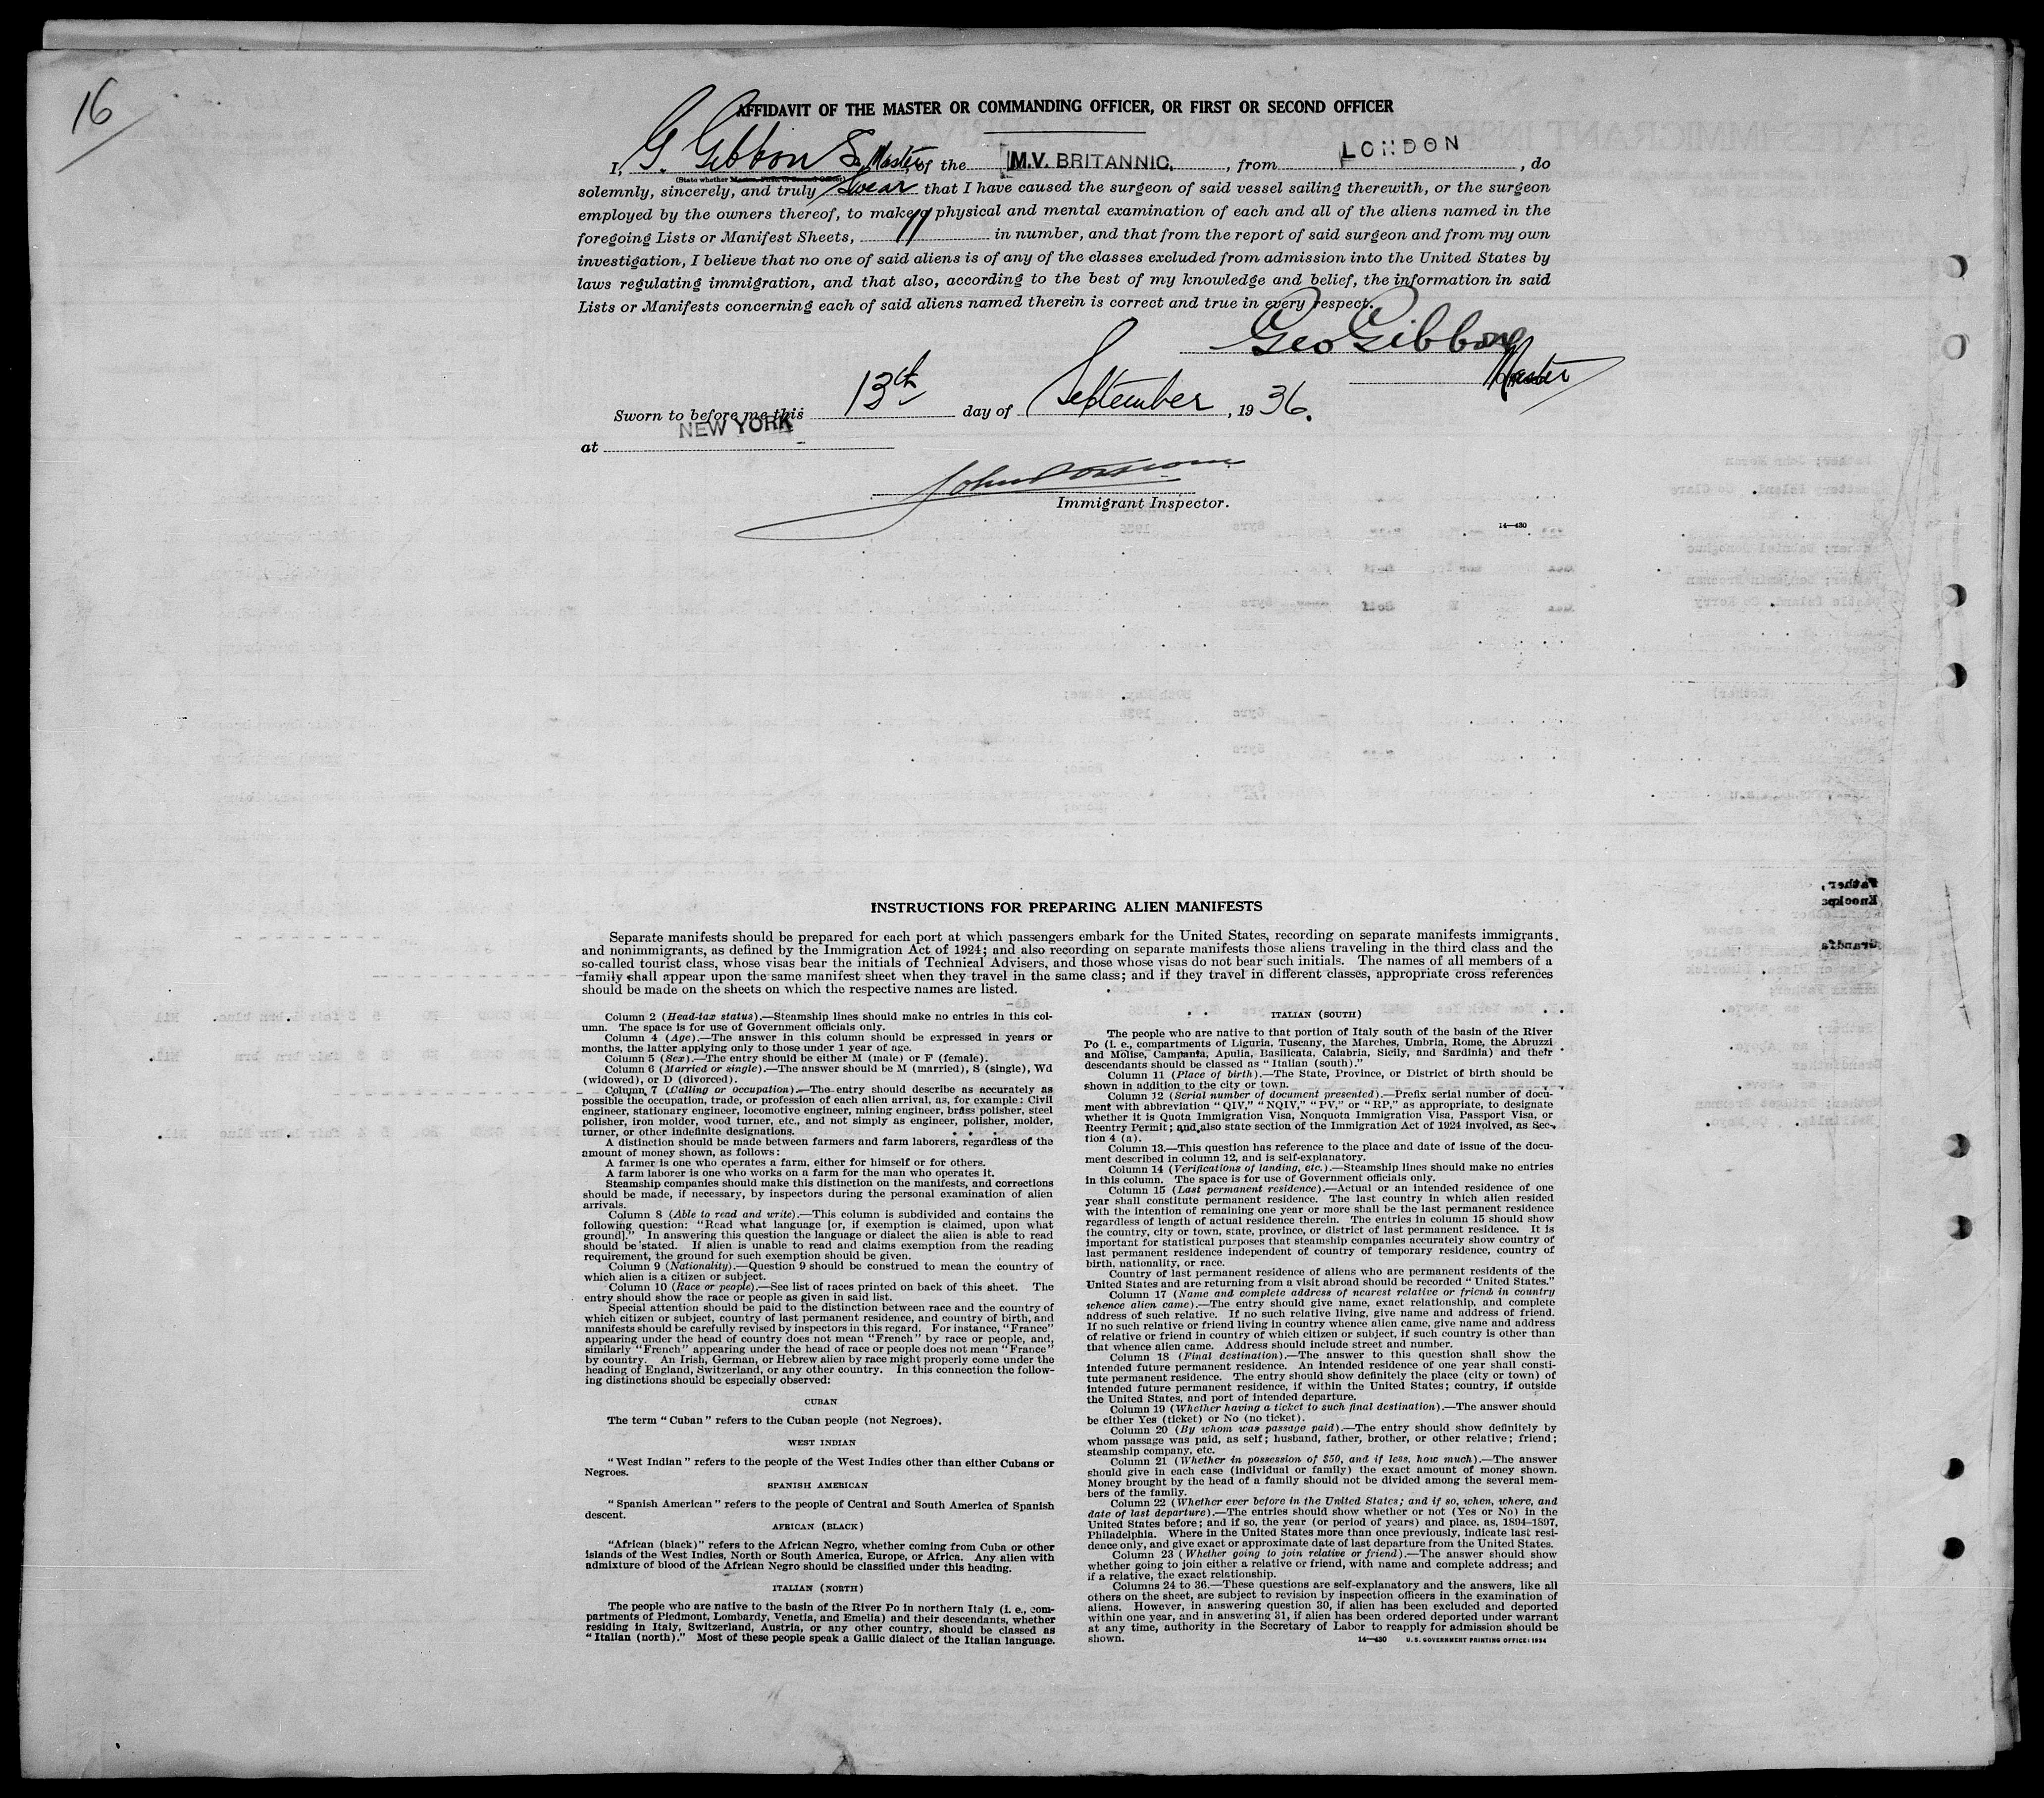 16
AFFIDAVIT OF THE MASTER OR COMMANDING OFFICER, OR FIRST OR SECOND OFFICER
I, G. Gibbons, Master, of the M.V. BRITANNIC, , from LONDON , do
(State whether Master, First, or Second Officer)
solemnly, sincerely, and truly swear that I have caused the surgeon of said vessel sailing therewith, or the surgeon
employed by the owners thereof, to make a physical and mental examination of each and all of the aliens named in the
foregoing Lists or Manifest Sheets, 11 in number, and that from the report of said surgeon and from my own
investigation, I believe that no one of said aliens is of any of the classes excluded from admission into the United States by
laws regulating immigration, and that also, according to the best of my knowledge and belief, the information in said
Lists or Manifests concerning each of said aliens named therein is correct and true in every respect.
Geo Gibbons
Master
Sworn to before me this 13th day of September, 1936.
at NEW YORK
John
Immigrant Inspector.
14—430
INSTRUCTIONS FOR PREPARING ALIEN MANIFESTS
Separate manifests should be prepared for each port at which passengers embark for the United States, recording on separate manifests immigrants
and nonimmigrants, as defined by the Immigration Act of 1924; and also recording on separate manifests those aliens traveling in the third class and the
so-called tourist class, whose visas bear the initials of Technical Advisers, and those whose visas do not bear such initials. The names of all members of a
family shall appear upon the same manifest sheet when they travel in the same class; and if they travel in different classes, appropriate cross references
should be made on the sheets on which the respective names are listed.
Column 2 (Head-tax status).—Steamship lines should make no entries in this col-
umn. The space is for use of Government officials only.
Column 4 (Age).—The answer in this column should be expressed in years or
months, the latter applying only to those under 1 year of age.
Column 5 (Sex).—The entry should be either M (male) or F (female).
Column 6 (Married or single).—The answer should be M (married), S (single), Wd
(widowed), or D (divorced).
Column 7 (Calling or occupation).—The entry should describe as accurately as
possible the occupation, trade, or profession of each alien arrival, as, for example: Civil
engineer, stationary engineer, locomotive engineer, mining engineer, brass polisher, steel
polisher, iron molder, wood turner, etc., and not simply as engineer, polisher, molder,
turner, or other indefinite designations.
A distinction should be made between farmers and farm laborers, regardless of the
amount of money shown, as follows:
A farmer is one who operates a farm, either for himself or for others.
A farm laborer is one who works on a farm for the man who operates it.
Steamship companies should make this distinction on the manifests, and corrections
should be made, if necessary, by inspectors during the personal examination of alien
arrivals.
Column 8 (Able to read and write).—This column is subdivided and contains the
following question: "Read what language [or, if exemption is claimed, upon what
ground]." In answering this question the language or dialect the alien is able to read
should be stated. If alien is unable to read and claims exemption from the reading
requirement, the ground for such exemption should be given.
Column 9 (Nationality).—Question 9 should be construed to mean the country of
which alien is a citizen or subject.
Column 10 (Race or people).—See list of races printed on back of this sheet. The
entry should show the race or people as given in said list.
Special attention should be paid to the distinction between race and the country of
which citizen or subject, country of last permanent residence, and country of birth, and
manifests should be carefully revised by inspectors in this regard. For instance, "France"
appearing under the head of country does not mean "French" by race or people, and,
similarly "French" appearing under the head of race or people does not mean "France"
by country. An Irish, German, or Hebrew alien by race might properly come under the
heading of England, Switzerland, or any other country. In this connection the follow-
ing distinctions should be especially observed:
CUBAN
The term "Cuban" refers to the Cuban people (not Negroes).
WEST INDIAN
"West Indian" refers to the people of the West Indies other than either Cubans or
Negroes.
SPANISH AMERICAN
"Spanish American" refers to the people of Central and South America of Spanish
descent.
AFRICAN (BLACK)
"African (black)" refers to the African Negro, whether coming from Cuba or other
islands of the West Indies, North or South America, Europe, or Africa. Any alien with
admixture of blood of the African Negro should be classified under this heading.
ITALIAN (NORTH)
The people who are native to the basin of the River Po in northern Italy (i. e., com-
partments of Piedmont, Lombardy, Venetia, and Emelia) and their descendants, whether
residing in Italy, Switzerland, Austria, or any other country, should be classed as
"Italian (north)." Most of these people speak a Gallic dialect of the Italian language.
ITALIAN (SOUTH)
The people who are native to that portion of Italy south of the basin of the River
Po (i. e., compartments of Liguria, Tuscany, the Marches, Umbria, Rome, the Abruzzi
and Molise, Campania, Apulia, Basilicata, Calabria, Sicily, and Sardinia) and their
descendants should be classed as "Italian (south)."
Column 11 (Place of birth).—The State, Province, or District of birth should be
shown in addition to the city or town.
Column 12 (Serial number of document presented).—Prefix serial number of docu-
ment with abbreviation "QIV," "NQIV," "PV," or "RP," as appropriate, to designate
whether it is Quota Immigration Visa, Nonquota Immigration Visa, Passport Visa, or
Reentry Permit; and also state section of the Immigration Act of 1924 involved, as Sec-
tion 4 (a).
Column 13.—This question has reference to the place and date of issue of the docu-
ment described in column 12, and is self-explanatory.
Column 14 (Verifications of landing, etc.).—Steamship lines should make no entries
in this column. The space is for use of Government officials only.
Column 15 (Last permanent residence).—Actual or an intended residence of one
year shall constitute permanent residence. The last country in which alien resided
with the intention of remaining one year or more shall be the last permanent residence
regardless of length of actual residence therein. The entries in column 15 should show
the country, city or town, state, province, or district of last permanent residence. It is
important for statistical purposes that steamship companies accurately show country of
last permanent residence independent of country of temporary residence, country of
birth, nationality, or race.
Country of last permanent residence of aliens who are permanent residents of the
United States and are returning from a visit abroad should be recorded "United States."
Column 17 (Name and complete address of nearest relative or friend in country
whence alien came).—The entry should give name, exact relationship, and complete
address of such relative. If no such relative living, give name and address of friend.
If no such relative or friend living in country whence alien came, give name and address
of relative or friend in country of which citizen or subject, if such country is other than
that whence alien came. Address should include street and number.
Column 18 (Final destination).—The answer to this question shall show the
intended future permanent residence. An intended residence of one year shall consti-
tute permanent residence. The entry should show definitely the place (city or town) of
intended future permanent residence, if within the United States; country, if outside
the United States, and port of intended departure.
Column 19 (Whether having a ticket to such final destination).—The answer should
be either Yes (ticket) or No (no ticket).
Column 20 (By whom was passage paid).—The entry should show definitely by
whom passage was paid, as self; husband, father, brother, or other relative; friend;
steamship company, etc.
Column 21 (Whether in possession of $50, and if less, how much).—The answer
should give in each case (individual or family) the exact amount of money shown.
Money brought by the head of a family should not be divided among the several mem-
bers of the family.
Column 22 (Whether ever before in the United States; and if so, when, where, and
date of last departure).—The entries should show whether or not (Yes or No) in the
United States before; and if so, the year (or period of years) and place, as, 1894–1897,
Philadelphia. Where in the United States more than once previously, indicate last resi-
dence only, and give exact or approximate date of last departure from the United States.
Column 23 (Whether going to join relative or friend).—The answer should show
whether going to join either a relative or friend, with name and complete address; and
if a relative, the exact relationship.
Columns 24 to 36.—These questions are self-explanatory and the answers, like all
others on the sheet, are subject to revision by inspection officers in the examination of
aliens. However, in answering question 30, if alien has been excluded and deported
within one year, and in answering 31, if alien has been ordered deported under warrant
at any time, authority in the Secretary of Labor to reapply for admission should be
shown.
14—430 U. S. GOVERNMENT PRINTING OFFICE: 1934